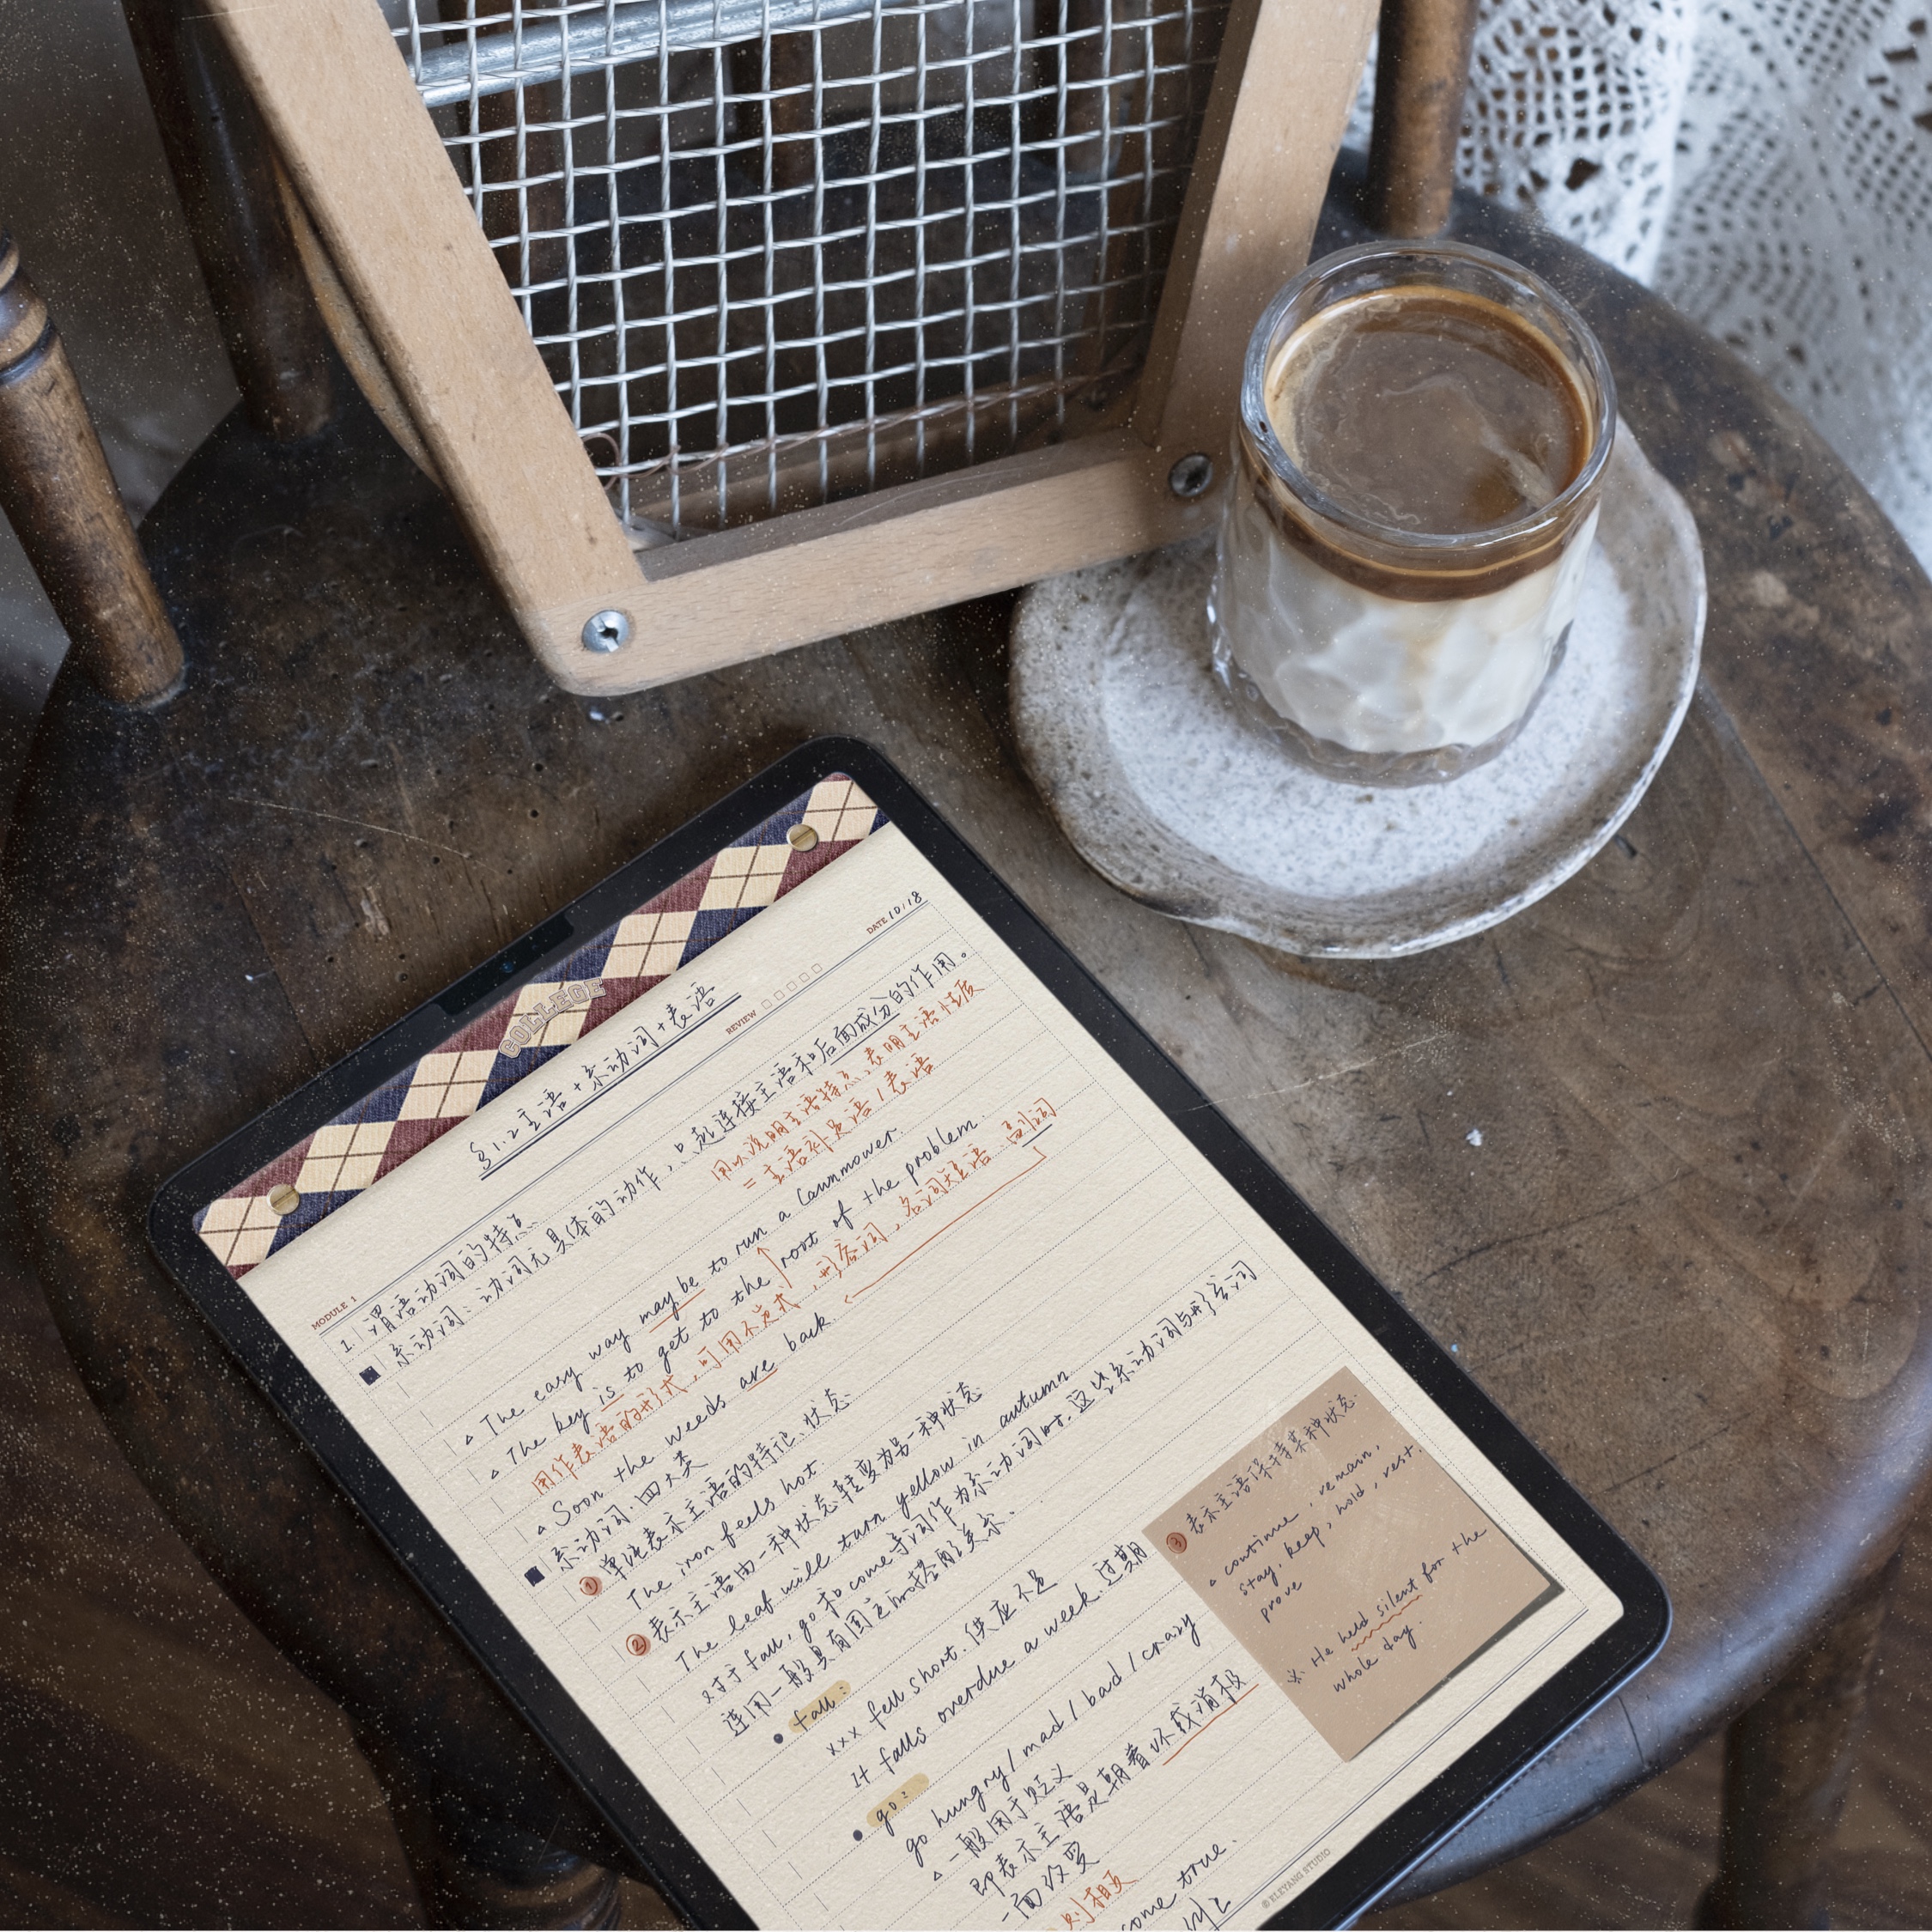 COLLEGE
DATE 10/18
§1.2 主语+系动词+表语
REVIEW
MODULE 1
1. 谓语动词的特点
系动词：动词无具体的动作，只起连接主语和后面成分的作用。
用以说明主语特点、表明主语性质
= 主语补足语 / 表语
△ The easy way may be to run a lawnmower.
△ The key is to get to the root of the problem.
用作表语的形式，可用不定式，形容词，名词短语 副词
△ Soon the weeds are back.
系动词．四大类
① 单纯表示主语的特征、状态
The iron feels hot.
② 表示主语由一种状态转变为另一种状态
The leaf will turn yellow in autumn
对于 fall, go 和 come 等词作为系动词时．这些系动词与形容词
连用一般具有固定的搭配关系．
fall:
xxx fell short. 供应不足
It falls overdue a week. 过期
go:
go hungry / mad / bad / crazy
△ 一般用于贬义
即表示主语是朝着坏或消极
一面改变
则相反
come true.
③ 表示主语保持某种状态
△ continue, remain,
stay, keep, hold, rest.
prove
※ He held silent for the
whole day.
© ELEYANG STUDIO